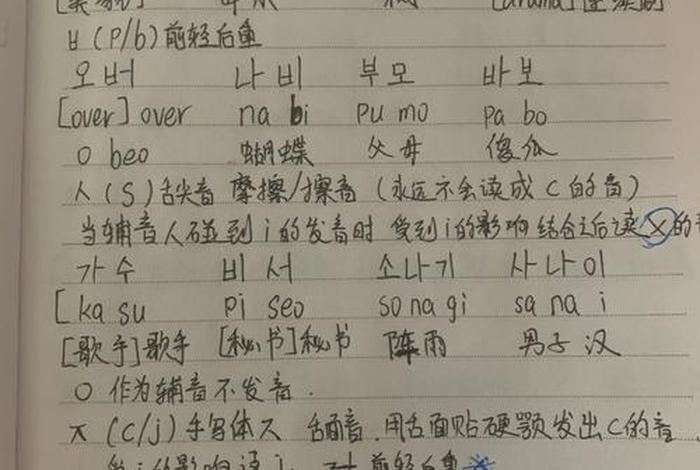 ㅂ(P/b)前轻后重
오버 나비 부모 바보
[over] over na bi pu mo pa bo
o beo 蝴蝶 父母 傻瓜
人(S)舌尖音 摩擦/擦音(永远不会读成C的音)
当辅音人碰到i的发音时 受到i的影响结合之后读X的
가수 비서 소나기 사나이
[ka su pi seo so na gi sa na i
[歌手]歌手 [秘书]秘书 阵雨 男子汉
O 作为辅音不发音.
ㅈ(C/j)手写体ス 舌面音.用舌面贴硬颚发出C的音